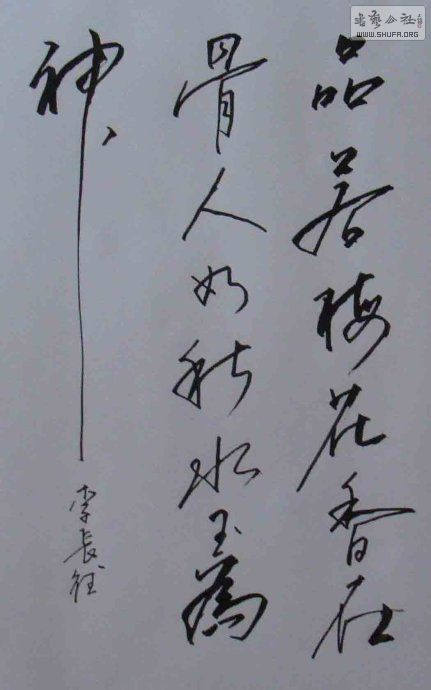 品若梅花香在
骨人如秋水玉為
神
李長征
書藝公社
WWW.SHUFA.ORG